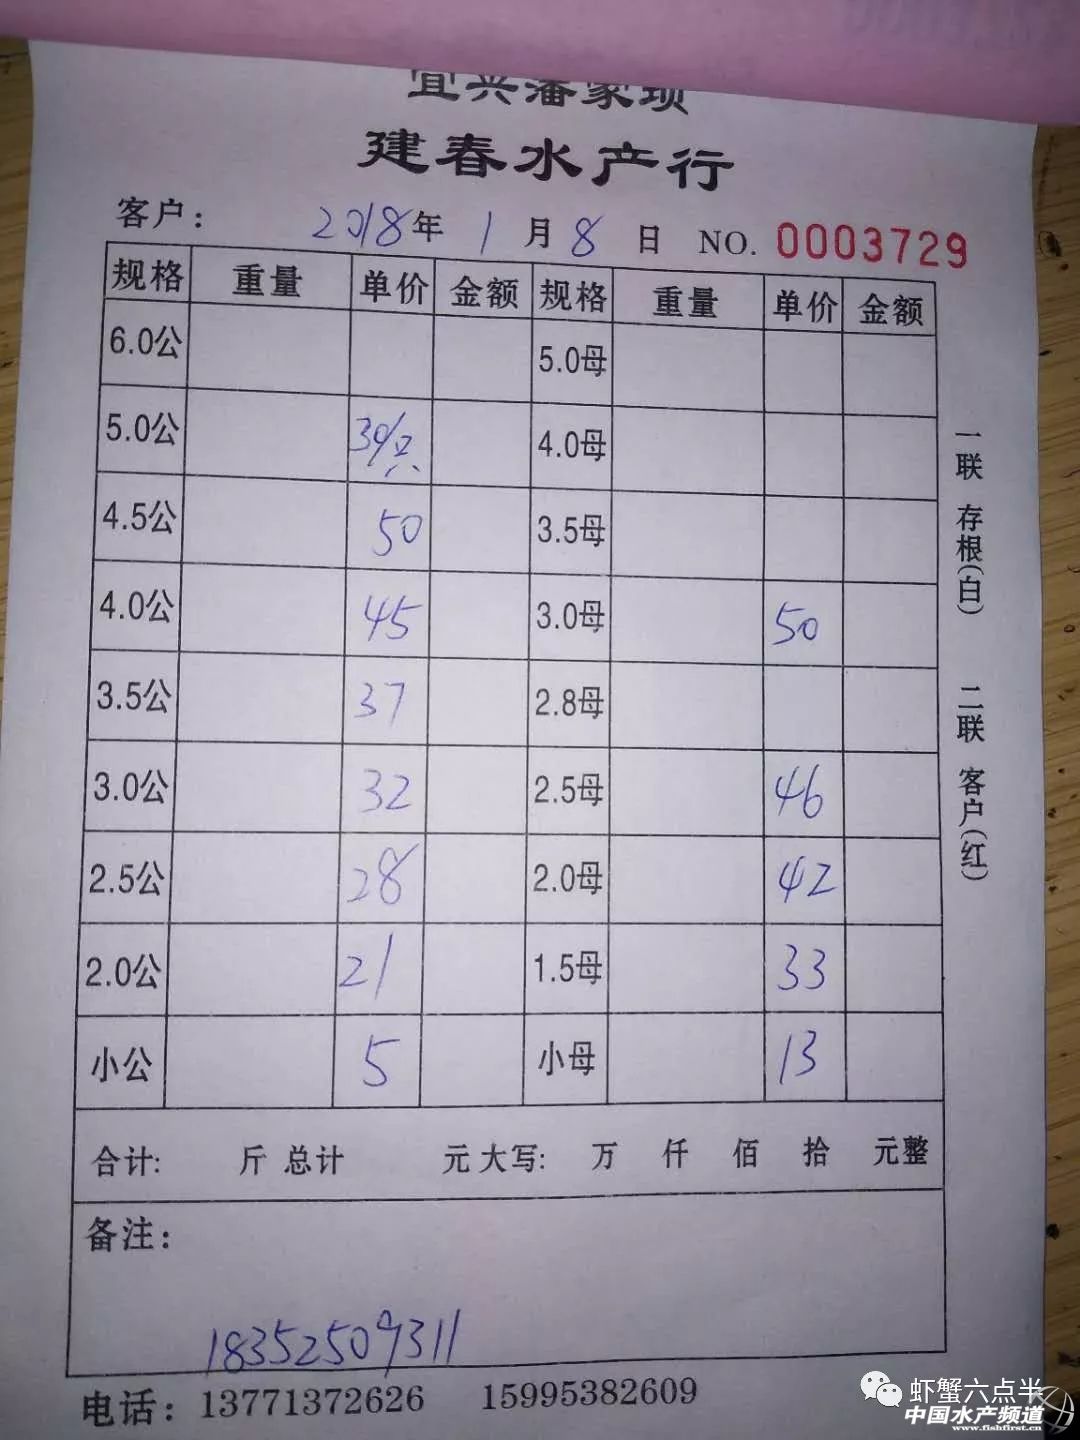 宜兴潘家坝
建春水产行
客户: 2018年 1月8日 NO. 0003729
规格 重量 单价 金额 规格 重量 单价 金额
6.0公 5.0母
5.0公 30/只 4.0母
4.5公 50 3.5母
4.0公 45 3.0母 50
3.5公 37 2.8母
3.0公 32 2.5母 46
2.5公 28 2.0母 42
2.0公 21 1.5母 33
小公 5 小母 13
合计: 斤 总计 元 大写: 万 仟 佰 拾 元整
备注:
18352509311
电话: 13771372626 15995382609
一联 存根(白) 二联 客户(红)
虾蟹六点半
中国水产频道
www.fishfirst.cn